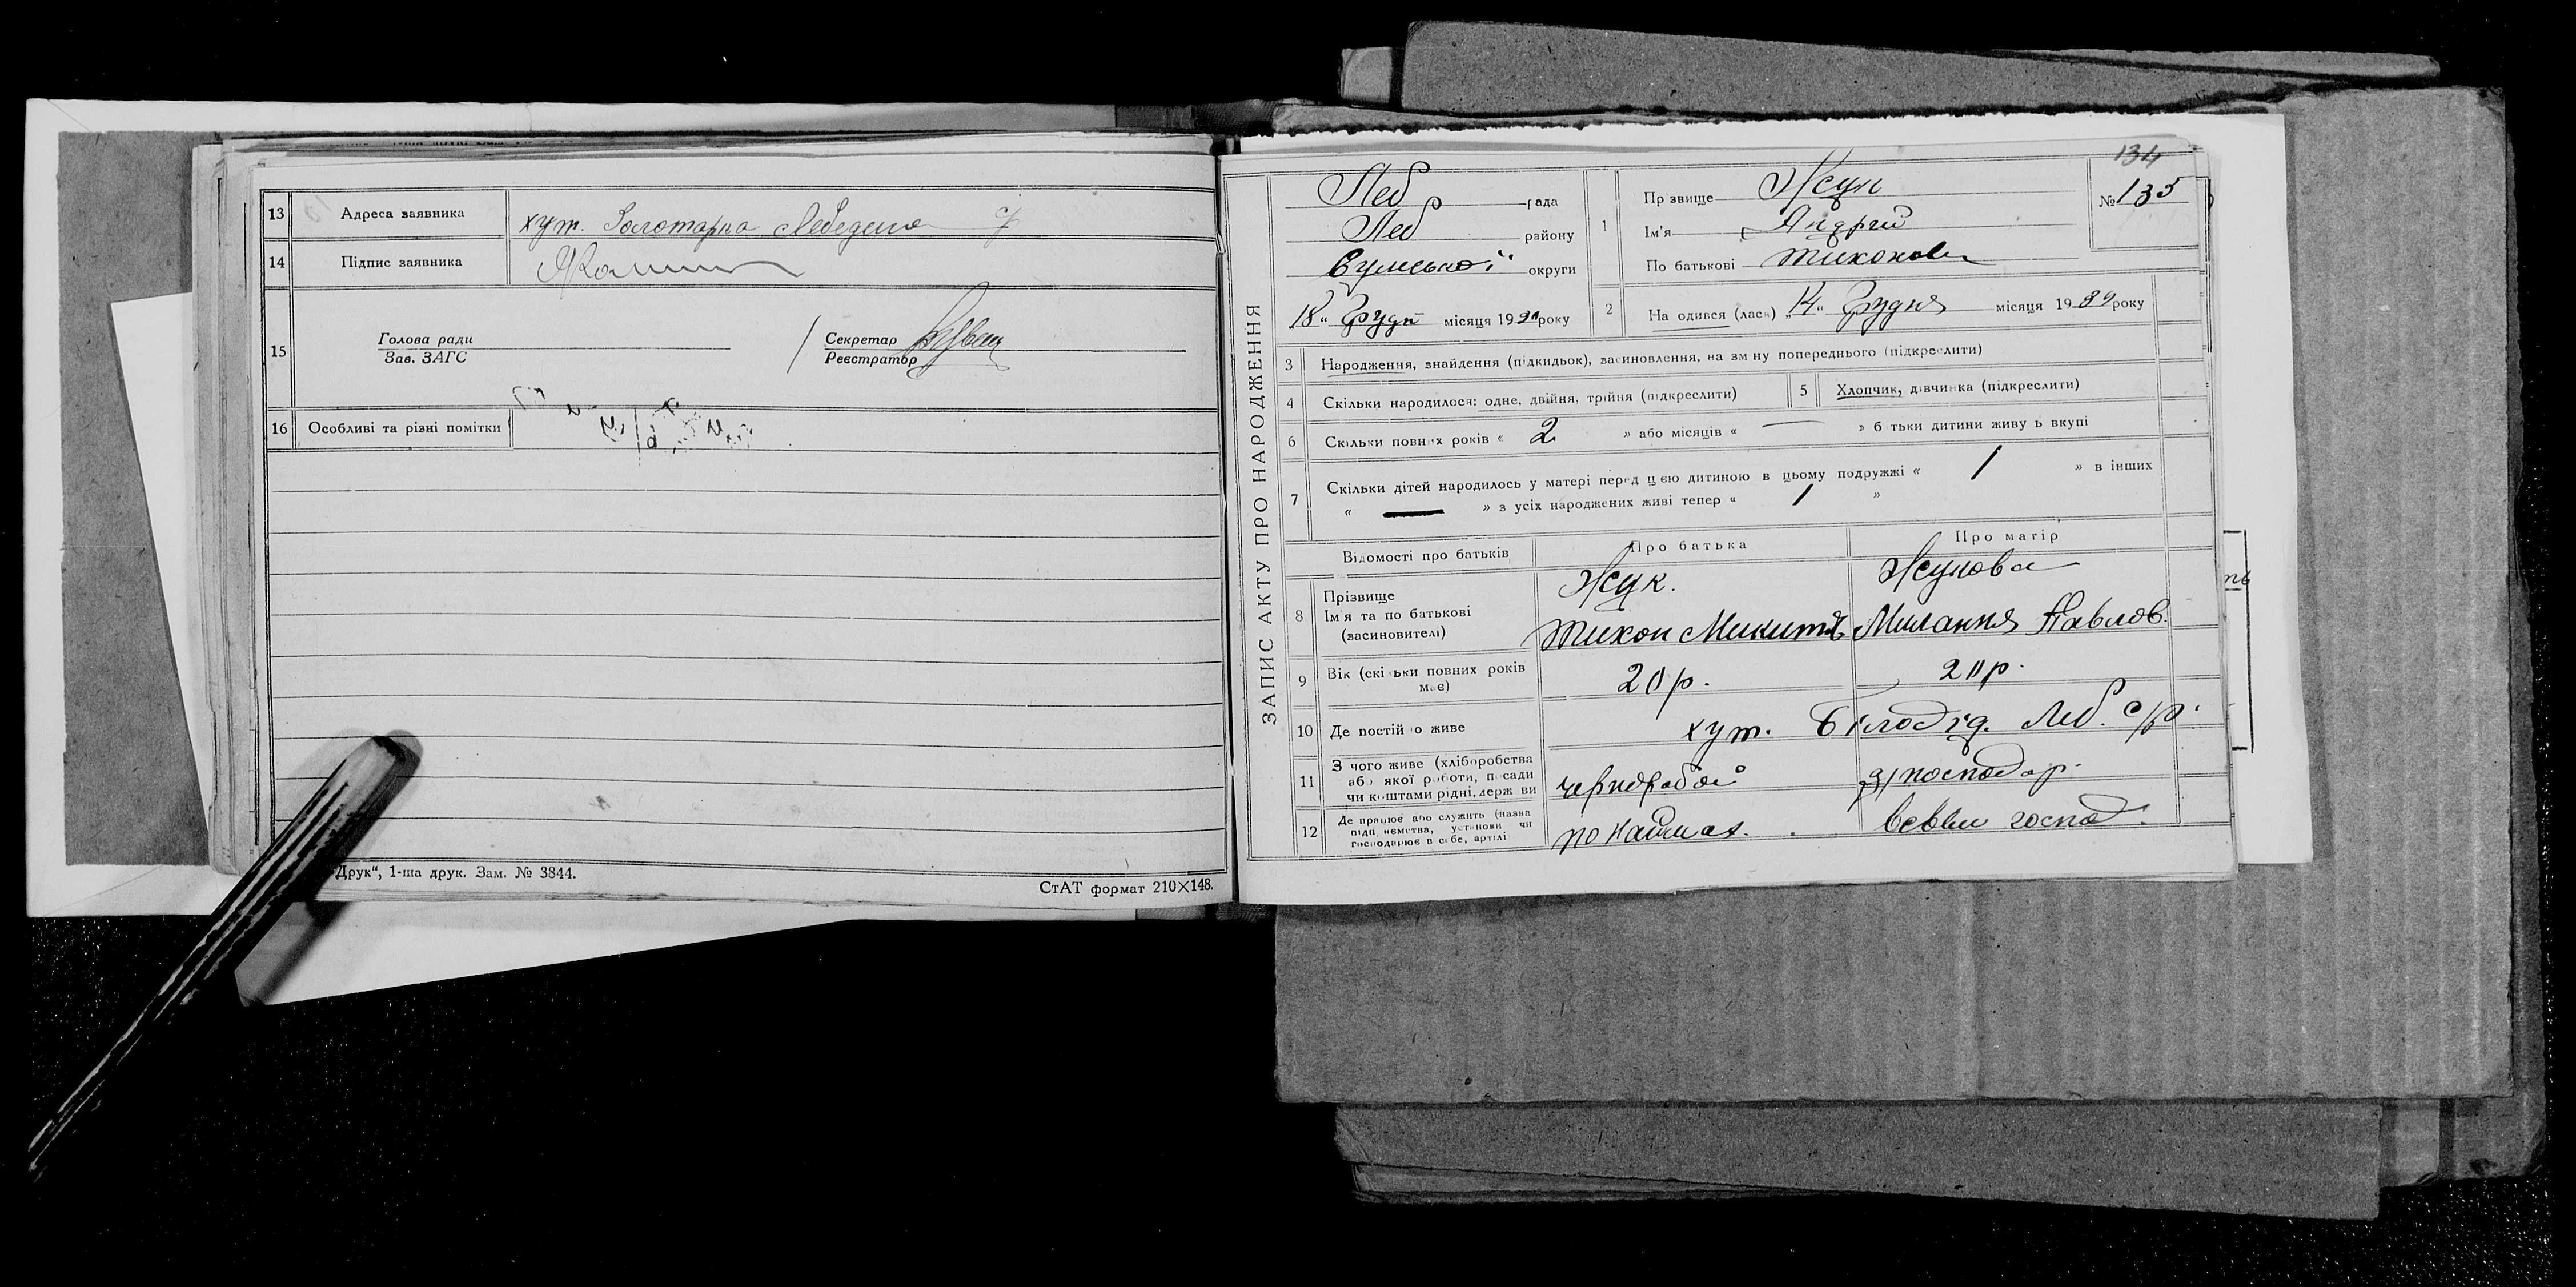 13 Адреса заявника хут. Золотарна Лебедина
14 Підпис заявника
15 Голова ради
Зав. ЗАГС
Секретар
Реєстратор
16 Особливі та різні помітки
Друк“, 1-ша друк. Зам. № 3844.
СтАТ формат 210×148.
134
№ 135
ЗАПИС АКТУ ПРО НАРОДЖЕННЯ
Леб рада
Леб району
Сумської округи
18 „ Грудн місяця 19 року
1 Прізвище Жук
Ім'я Андрій
По батькові Тихонов
2 Народився (лась) „14“ Грудня місяця 19 29 року
3 Народження, знайдення (підкидьок), засиновлення, на зміну попереднього (підкреслити)
4 Скільки народилося: одне, двійня, трійня (підкреслити) 5 Хлопчик, дівчинка (підкреслити)
6 Скільки повних років « 2 » або місяців « — » батьки дитини живуть вкупі
7 Скільки дітей народилось у матері перед цією дитиною в цьому подружжі « 1 » в інших
« — » з усіх народжених живі тепер « 1 »
Відомості про батьків Про батька Про матір
8 Прізвище Жук. Жукова
Ім'я та по батькові
(засиновителі) Тихон Микит. Милання Павлов.
9 Вік (скільки повних років
має) 20 р. 20 р.
10 Де постійно живе хут. Білодід. Леб. с/р.
11 З чого живе (хліборобства
або якої роботи, посади
чи коштами рідні, держави чернороб
12 Де працює або служить (назва
підприємства, установи чи
господарює в себе, артілі по наймах. господ.